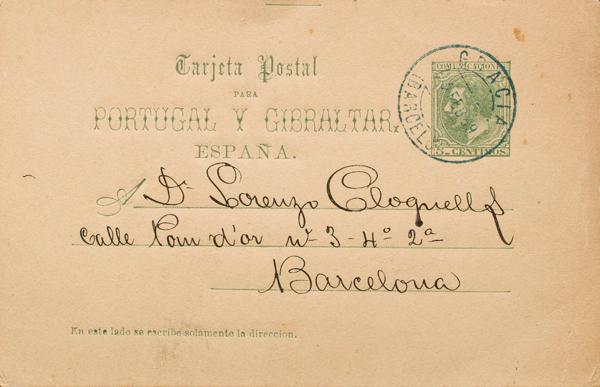 Tarjeta Postal
PARA
PORTUGAL Y GIBRALTAR.
ESPAÑA.
COMUNICACIONES
5 CENTIMOS
GRACIA
(BARCELO
A Dn Lorenzo Cloquells
Calle Pom d'or nº 3-4º 2ª
Barcelona
En este lado se escribe solamente la direccion.